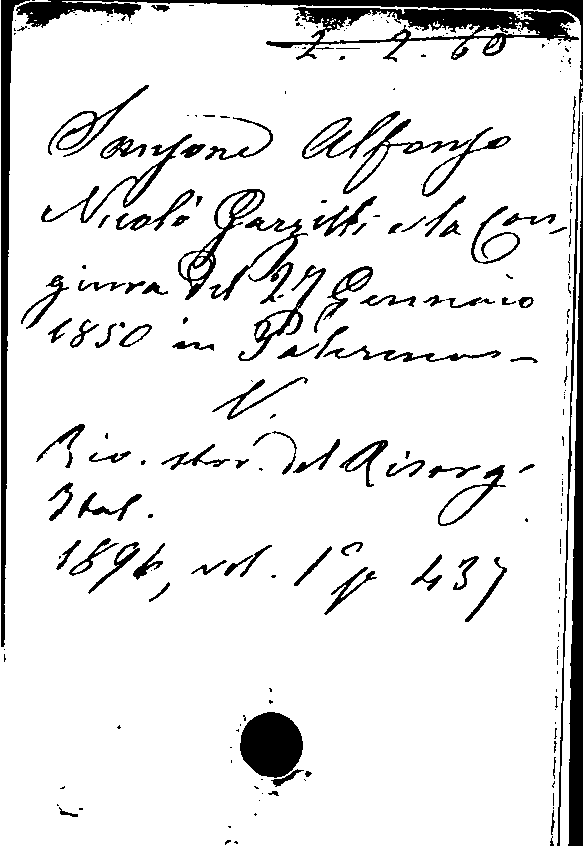 2. 2. 60
Sansone Alfonso
Nicolò Garzilli e la Con-
giura del 27 Gennaio
1850 in Palermo –
V.
Riv. stor. del Risorg.
Ital.
1896, vol. 1º p 437